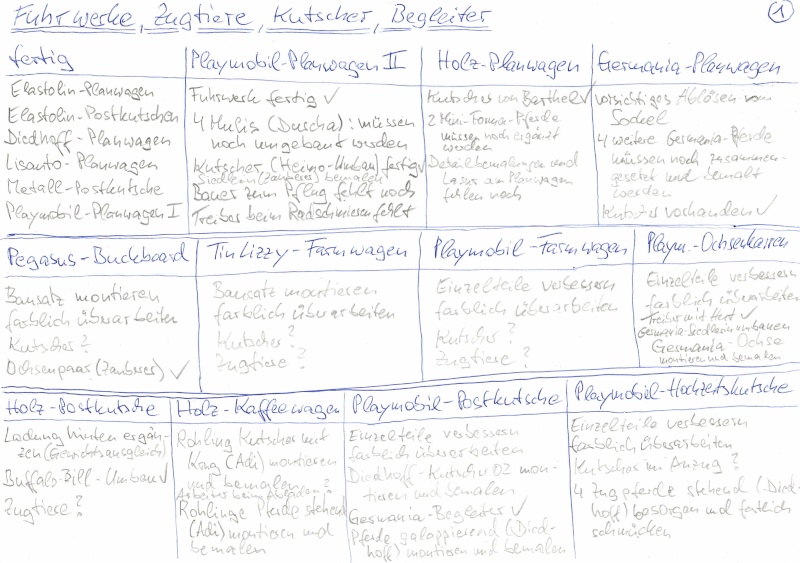 Fuhrwerke, Zugtiere, Kutscher, Begleiter
1
fertig
Elastolin-Planwagen
Elastolin-Postkutschen
Diedhoff-Planwagen
Lisanto-Planwagen
Metall-Postkutsche
Playmobil-Planwagen I
Playmobil-Planwagen II
Fuhrwerk fertig ✓
4 Mulis (Duscha): müssen
noch umgebaut werden
Kutscher (Heimo-Umbau) fertig ✓
Siedlerin (Zauberes) bemalen
Bauer zum Pflug fehlt noch
Treiber beim Radschmiesen fehlt
Holz-Planwagen
Kutscher von Barthel ✓
2 Mini-Forma-Pferde
müssen noch ergänzt
werden
Detailbemalungen und
Lasur am Planwagen
fehlen noch
Germania-Planwagen
vorsichtiges Ablösen vom
Sockel
4 weitere Germania-Pferde
müssen noch zusammen-
gesetzt und bemalt
werden
Kutscher vorhanden ✓
Pegasus-Buckboard
Bausatz montieren
farblich überarbeiten
Kutscher?
Ochsenpaar (Zauberes) ✓
Tin Lizzy-Farmwagen
Bausatz montieren
farblich überarbeiten
Kutscher?
Zugtiere?
Playmobil-Farmwagen
Einzelteile verbessern
farblich überarbeiten
Kutscher?
Zugtiere?
Playm.-Ochsenkarren
Einzelteile verbessern
farblich überarbeiten
Treiber mit Hut ✓
Germania-Siedlerin umbauen
Germania-Ochse
montieren und bemalen
Holz-Postkutsche
Ladung hinten ergän-
zen (Gewichtsausgleich)
Buffalo-Bill-Umbau ✓
Zugtiere?
Holz-Kaffeewagen
Rohling Kutscher mit
Krug (Adi) montieren
und bemalen
Arbeiter beim Abladen?
Rohlinge Pferde stehend
(Adi) montieren und
bemalen
Playmobil-Postkutsche
Einzelteile verbessern
farblich überarbeiten
Diedhoff-Kutscher 02 mon-
tieren und bemalen
Germania-Begleiter ✓
Pferde, galoppierend (Died-
hoff) montieren und bemalen
Playmobil-Hochzeitskutsche
Einzelteile verbessern
farblich überarbeiten
Kutscher im Anzug?
4 Zugpferde stehend (Died-
hoff) besorgen und festlich
schmücken